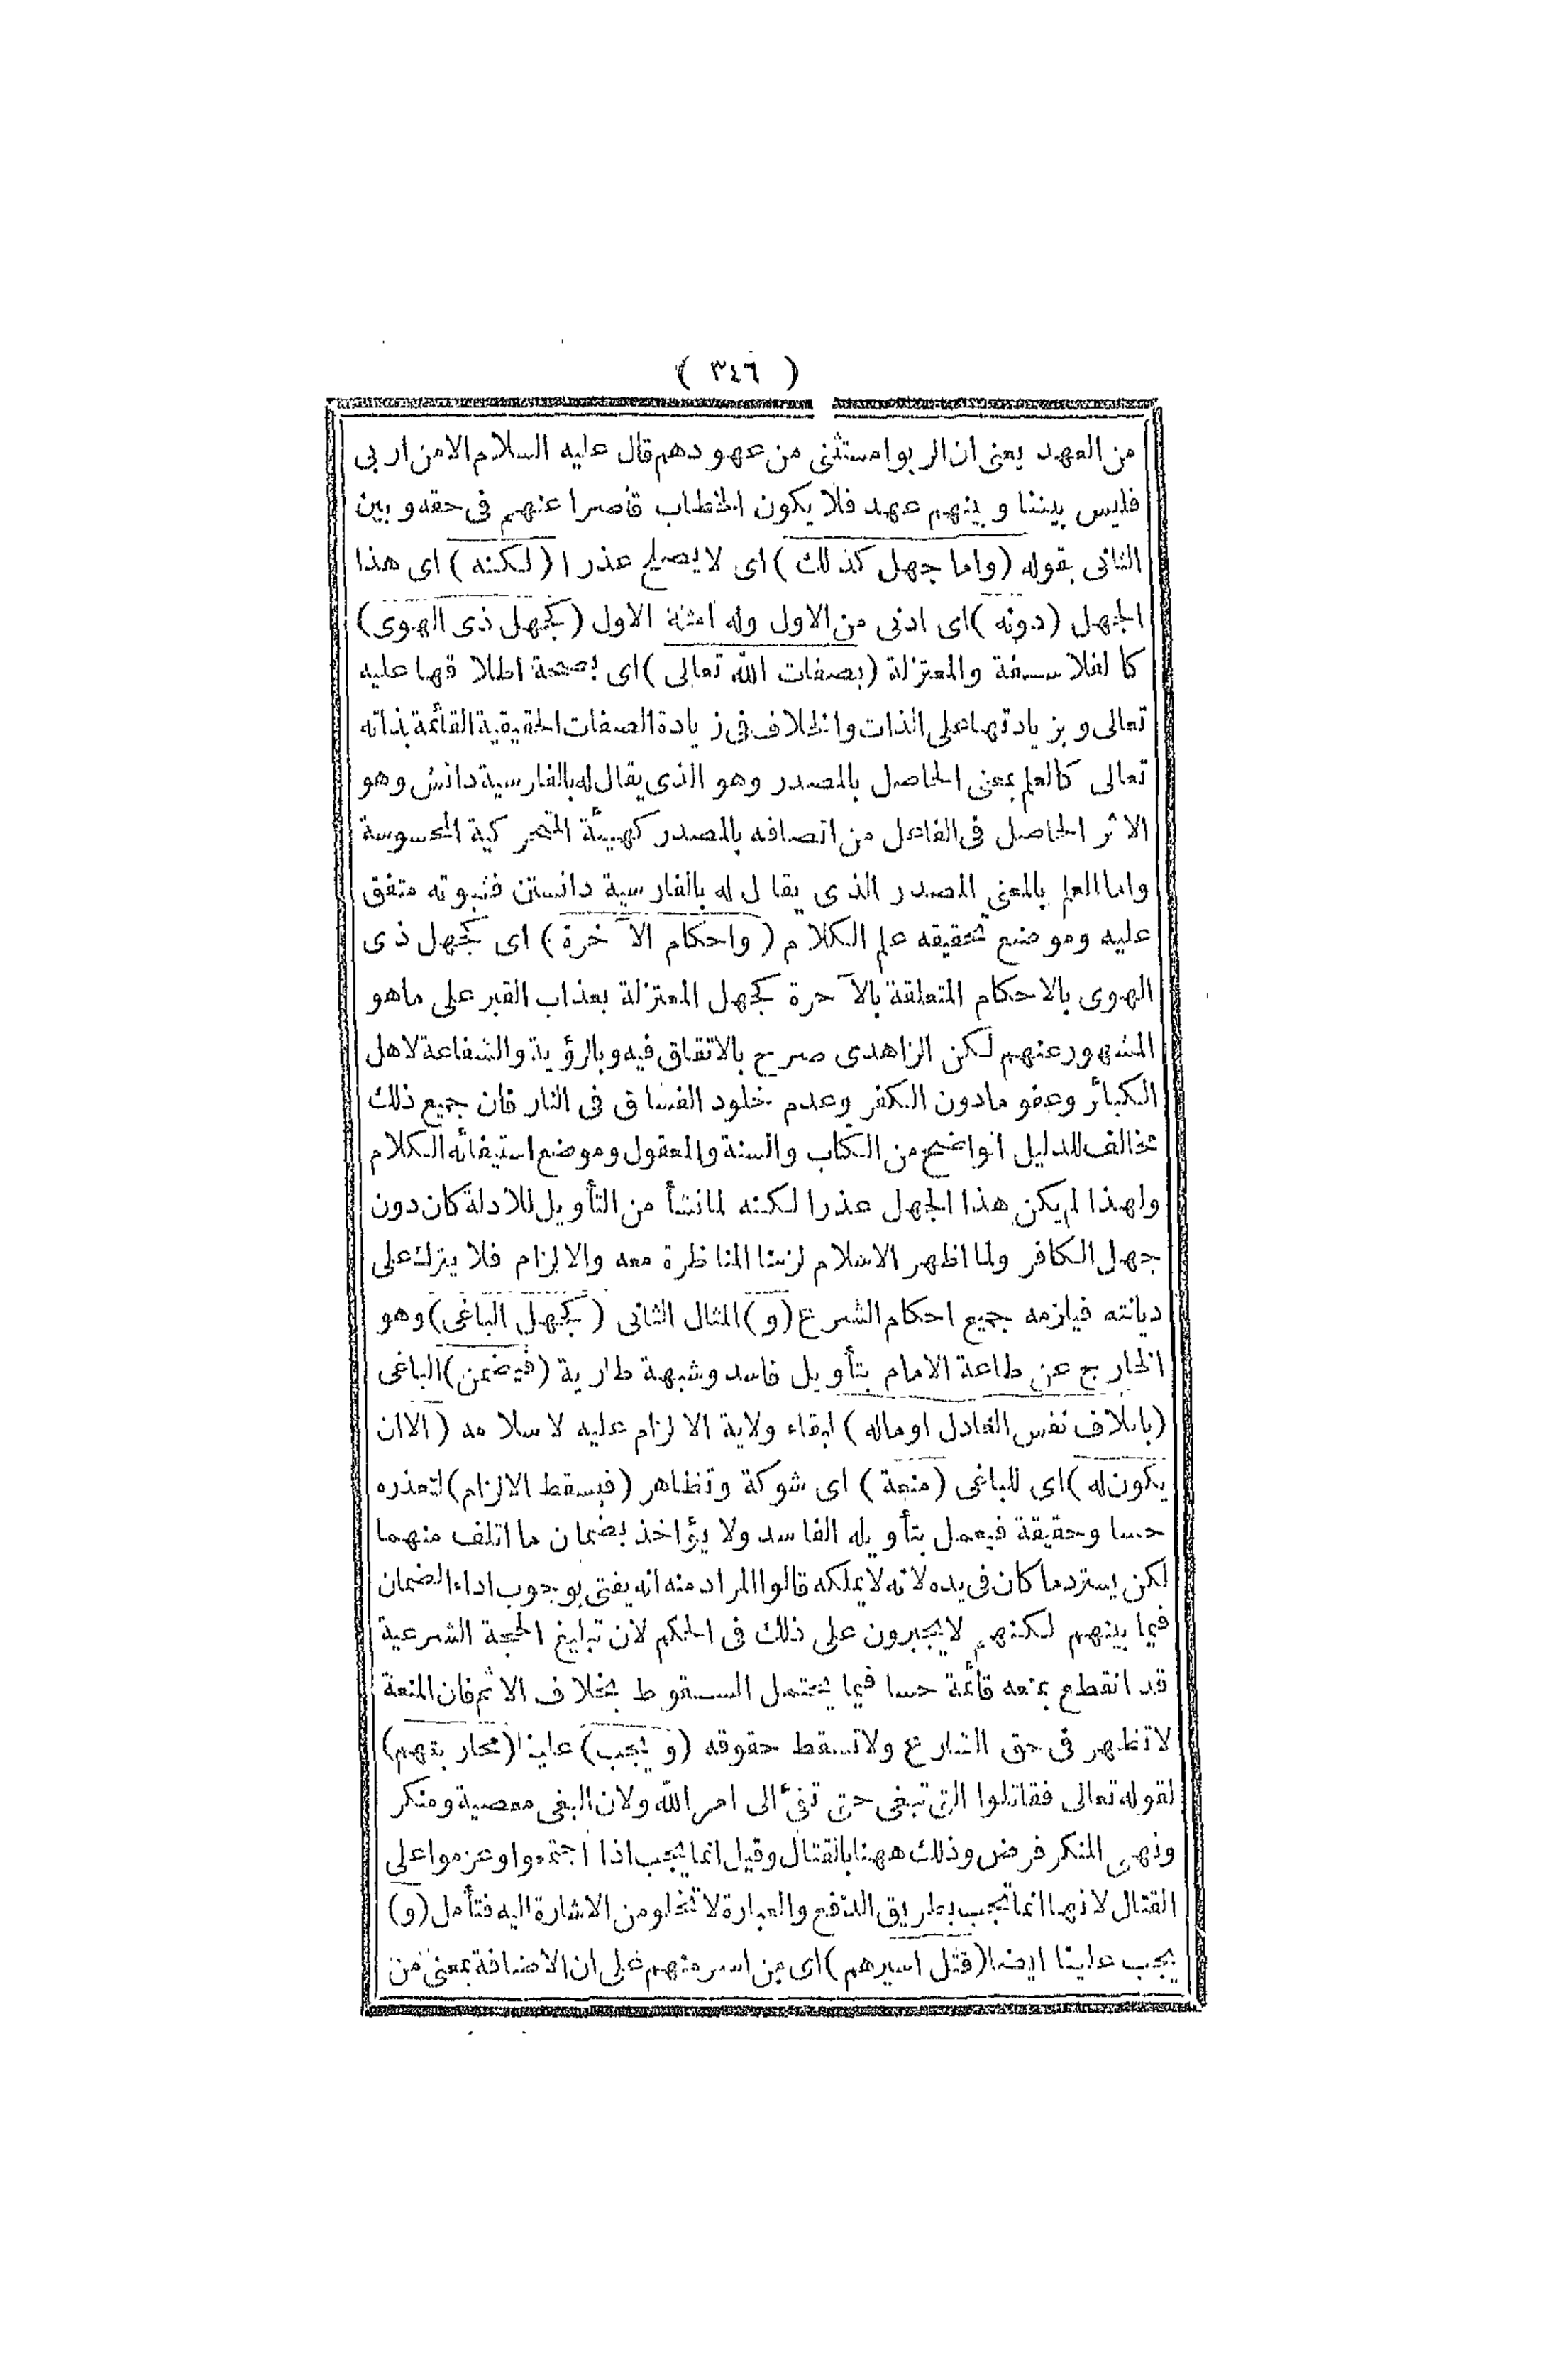 ( ٣٤٦ )
من العهد يعنى ان الربوا مستثنى من عهودهم قال عليه السلام الا من اربى
فليس بيننا وبينهم عهد فلا يكون الخطاب قاصرا عنهم فى حقه وبين
الثانى بقوله (واما جهل كذلك) اى لا يصلح عذرا (لكنه) اى هذا
الجهل (دونه) اى ادنى من الاول وله امثلة الاول (كجهل ذى الهوى)
كالفلاسفة والمعتزلة (بصفات الله تعالى) اى بصحة اطلاقها عليه
تعالى وبزيادتها على الذات والخلاف فى زيادة الصفات الحقيقية القائمة بذاته
تعالى كالعلم بمعنى الحاصل بالمصدر وهو الذى يقال له بالفارسية دانش وهو
الاثر الحاصل فى الفاعل من اتصافه بالمصدر كهيئة المتحركية المحسوسة
واما العلم بالمعنى المصدر الذى يقال له بالفارسية دانستن فثبوته متفق
عليه وموضع تحقيقه علم الكلام (واحكام الآخرة) اى كجهل ذى
الهوى بالاحكام المتعلقة بالآخرة كجهل المعتزلة بعذاب القبر على ماهو
المشهور عنهم لكن الزاهدى صرح بالاتفاق فيه وبالرؤية والشفاعة لاهل
الكبائر وعفو مادون الكفر وعدم خلود الفساق فى النار فان جميع ذلك
تخالف للدليل الواضح من الكتاب والسنة والمعقول وموضع استيفائه الكلام
ولهذا لم يكن هذا الجهل عذرا لكنه لما نشأ من التأويل للادلة كان دون
جهل الكافر ولما اظهر الاسلام لزمنا المناظرة معه والالزام فلا يترك على
ديانته فيلزمه جميع احكام الشرع (و) المثال الثانى (كجهل الباغى) وهو
الخارج عن طاعة الامام بتأويل فاسد وشبهة طارية (فيضمن) الباغى
(باتلاف نفس العادل او ماله) لبقاء ولاية الالزام عليه لاسلامه (الا ان
يكون له) اى للباغى (منعة) اى شوكة وتظاهر (فيسقط الالزام) لتعذره
حسا وحقيقة فيعمل بتأويله الفاسد ولا يؤاخذ بضمان ما اتلف منهما
لكن يسترد ما كان فى يده لانه لا يملكه قالوا المراد منه انه يفتى بوجوب اداء الضمان
فيما بينهم لكنهم لا يجبرون على ذلك فى الحكم لان تبليغ الحجة الشرعية
قد انقطع بمنعه قائمة حسا فيما يحتمل السقوط بخلاف الاثم فان المنعة
لا تظهر فى حق الشارع ولا تسقط حقوقه (و يجب) علينا (محاربتهم)
لقوله تعالى فقاتلوا التى تبغى حتى تفئ الى امر الله ولان البغى معصية ومنكر
ونهى المنكر فرض وذلك ههنا بالقتال وقيل انما يجب اذا اجتمعوا وعزموا على
القتال لانها انما تجب بطريق الدفع والعبارة لا تخلو من الاشارة اليه فتأمل (و)
يجب علينا ايضا (قتل اسيرهم) اى من اسر منهم على ان الاضافة بمعنى من